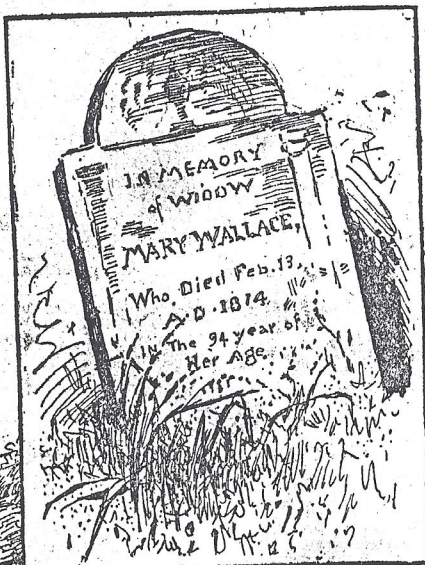 IN MEMORY
of WIDOW
MARY WALLACE,
Who, Died Feb. 13,
A.D. 1814.
In The 94 year of
Her Age